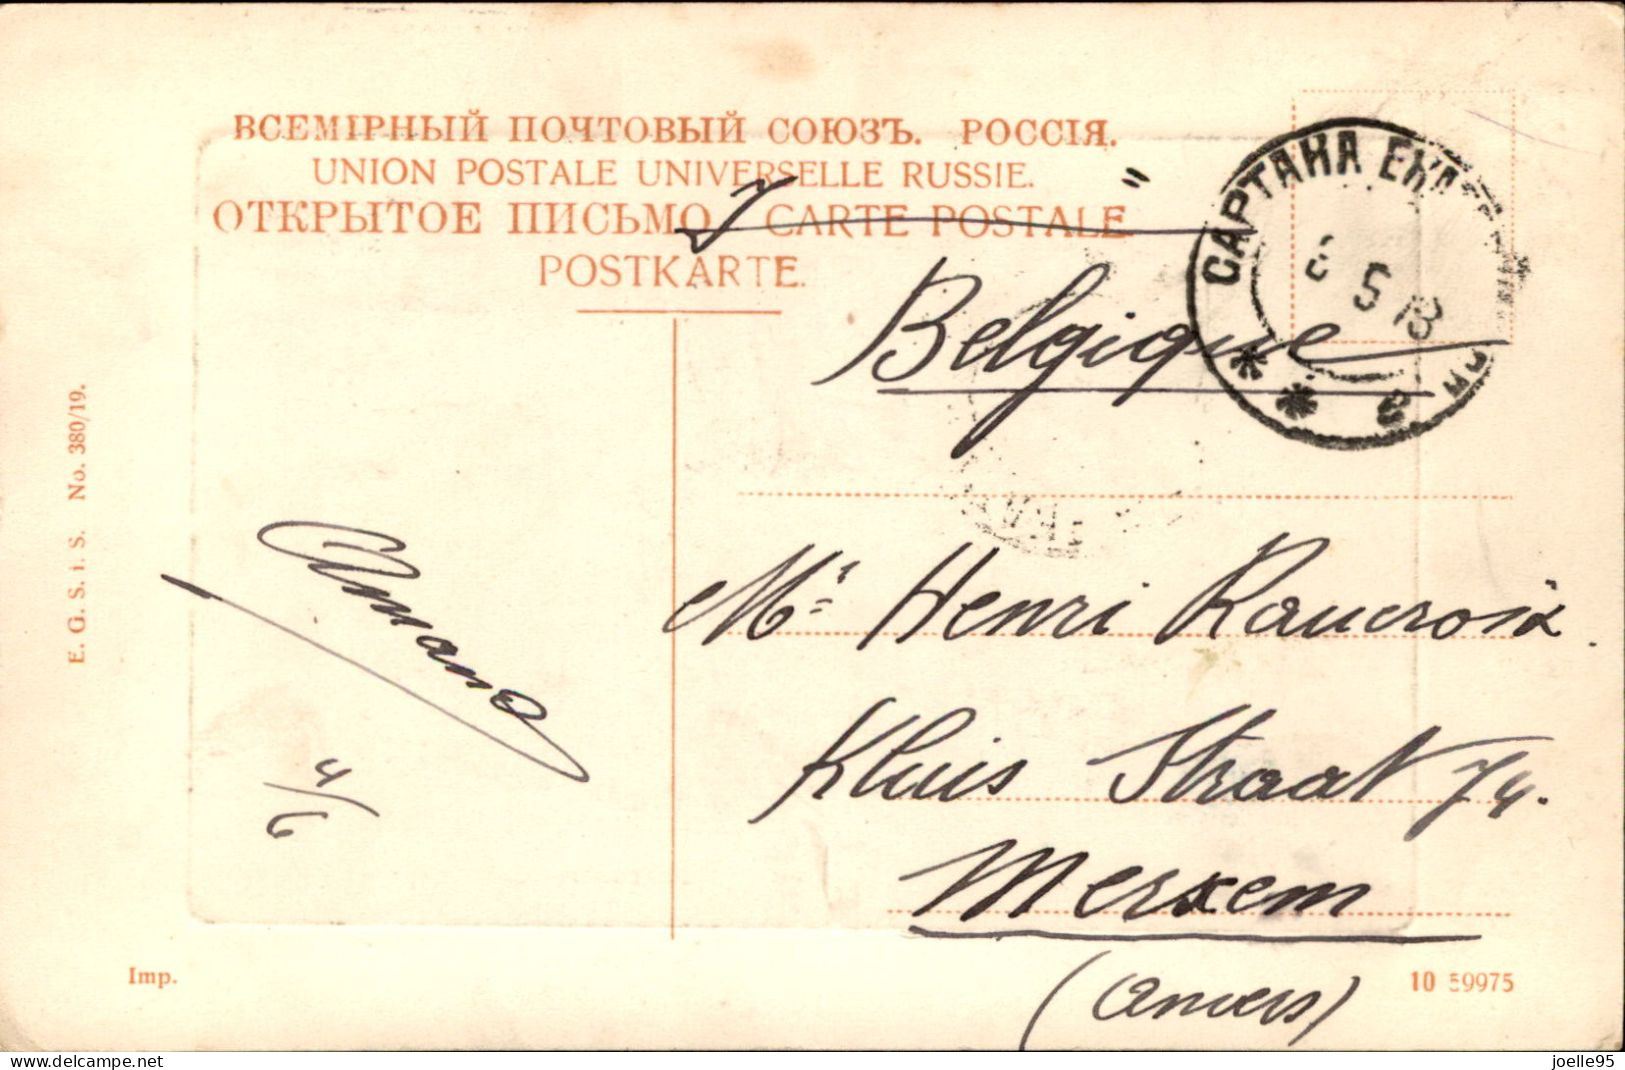 ВСЕМІРНЫЙ ПОЧТОВЫЙ СОЮЗЪ. РОССІЯ.
UNION POSTALE UNIVERSELLE RUSSIE.
ОТКРЫТОЕ ПИСЬМО. CARTE POSTALE
POSTKARTE.
САРТАНА ЕКАТ
5 13
Belgique
E. G. S. i. S. No. 380/19.
Mr Henri Raucroix.
Kluis Straat 74.
Merxem
(Anvers)
Amand
4/6
Imp.
10 59975
www.delcampe.net
joelle95